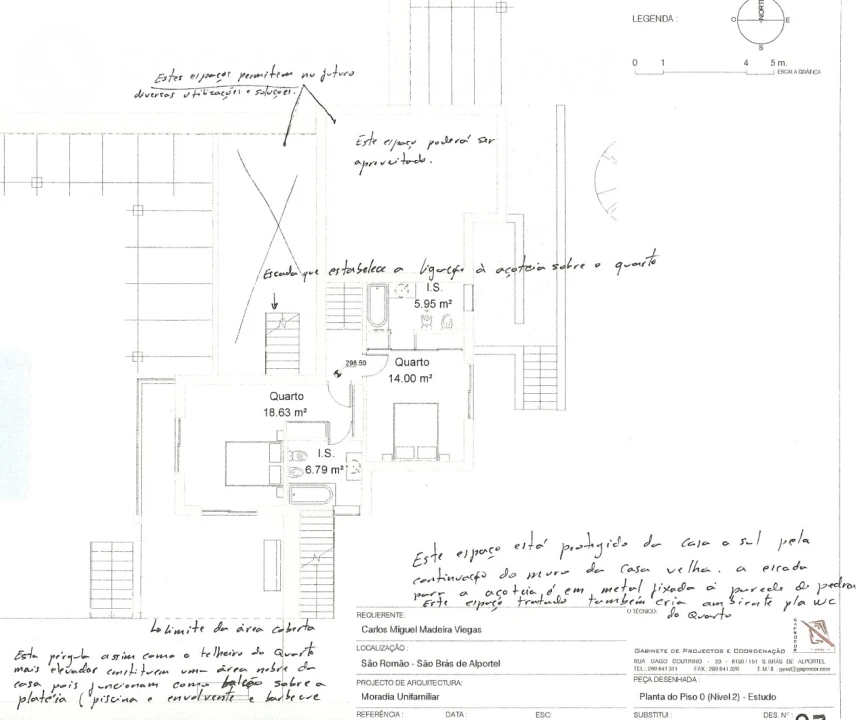 LEGENDA :
NORTE
O
E
S
0 1 4 5 m.
ESCALA GRÁFICA
Estes espaços permitem no futuro
diversas utilizações e soluções.
Este espaço poderá ser
aproveitado.
Escada que estabelece a ligação à açoteia sobre o quarto
I.S.
5.95 m²
298.50
Quarto
14.00 m²
Quarto
18.63 m²
I.S.
6.79 m²
Este espaço está protegido da casa a sul pela
continuação do muro da casa velha. a escada
para a açoteia é em metal fixada à parede de pedra
Este espaço tratado também cria ambiente p/a WC
do Quarto
limite da área coberta
Esta pérgula assim como o telheiro do Quarto
mais elevados constituem uma área nobre da
casa pois funcionam como balcão sobre a
plateia (piscina e envolvente e barbecue
REQUERENTE:
Carlos Miguel Madeira Viegas
LOCALIZAÇÃO :
São Romão - São Brás de Alportel
PROJECTO DE ARQUITECTURA:
Moradia Unifamiliar
REFERÊNCIA : DATA : ESC:
O TÉCNICO:
GAPROCOR
GABINETE DE PROJECTOS E COORDENAÇÃO
RUA GAGO COUTINHO - 33 - 8150/151 S.BRÁS DE ALPORTEL
PEÇA DESENHADA :
Planta do Piso 0 (Nível 2) - Estudo
SUBSTITUI : DES. Nº :